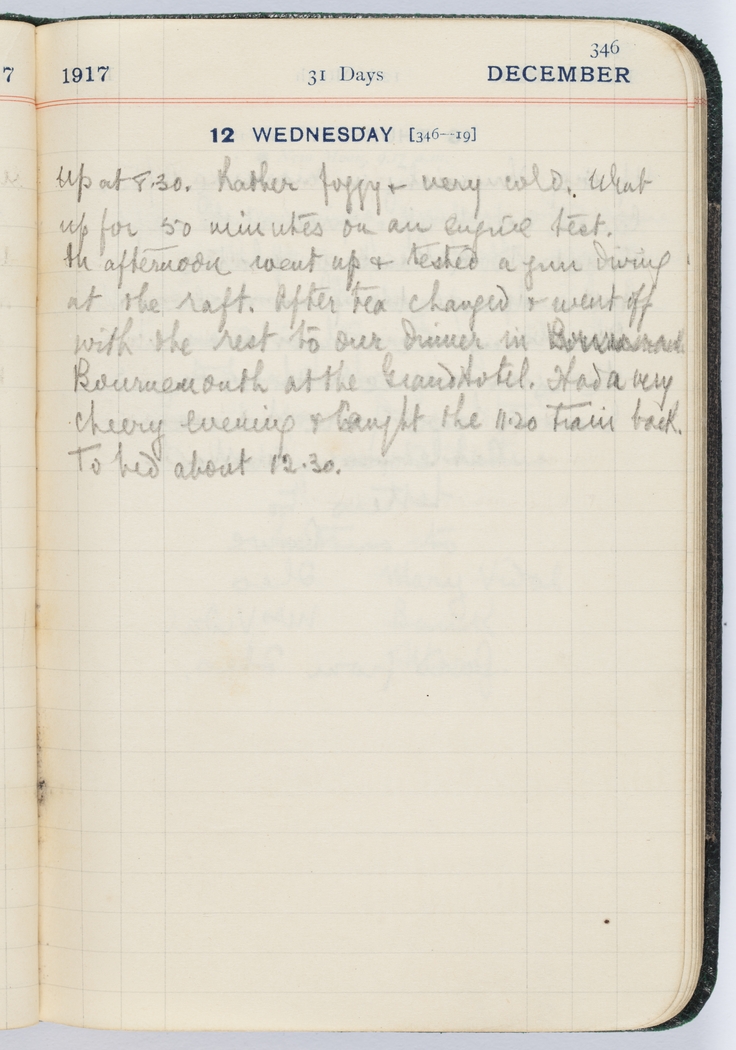 7
346
1917 31 Days DECEMBER
12 WEDNESDAY [346–19]
Up at 8.30. Rather foggy & very cold. Went
up for 50 minutes on an engine test.
In afternoon went up & tested a gun diving
at the raft. After tea changed & went off
with the rest to our dinner in
Bournemouth at the Grand Hotel. Had a very
cheery evening & caught the 11.20 train back.
To bed about 12.30.